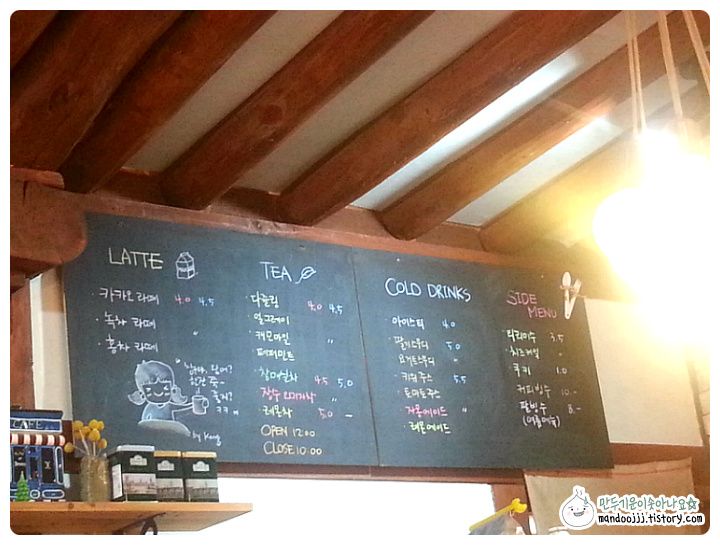 LATTE
· 카카오 라떼 4.0 4.5
· 녹차 라떼 "
· 홍차 라떼
by Kang
TEA
· 다즐링 4.0 4.5
얼그레이
캐모마일 "
페퍼민트
4.5 5.0
장수 오미자차 "
· 레몬차 5.0 -
OPEN 12:00
CLOSE 10:00
COLD DRINKS
아이스티 4.0
· 딸기스무디 5.0
요거트스무디 "
· 키위주스 5.5
· 토마토주스
· 자몽에이드 "
· 레몬에이드
SIDE MENU
· 티라미수 3.5
· 치즈케익
· 쿠키 1.0
커피빙수 10.-
팥빙수 8.-
(여름메뉴)
CAFE
만두기운이솟아나요☆
mandoojjj.tistory.com